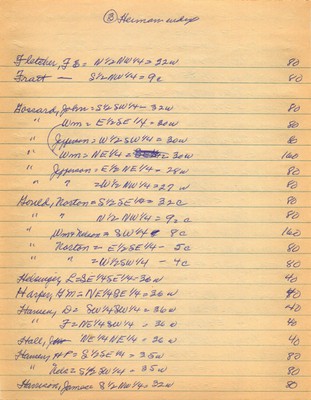 Fletcher, F S = N1/2 NW1/4 = 32w 80
Fratt — S1/2 NW1/4 = 9c 80
Gossard, John = S1/2 SW1/4 - 32w 80
" Wm = E1/2 SE1/4 = 30w 80
Jefferson = W1/2 SW1/4 = 30w
" Wm = NE1/4 = 30w 160
" Jefferson = E1/2 NE1/4 = 28w 80
" " = W1/2 NW1/4 = 27w 80
Gould, Norton = S1/2 SE1/4 = 32c 80
" " N1/2 NW1/4 = 9c 80
" Nelson = SW1/4 8c 160
" Norton = E1/2 SE1/4 - 5c 80
" " = W1/2 SW1/4 - 4c 80
L = SE1/4 SE1/4 - 36w 40
Harper, H M = NE1/4 SE1/4 = 36w 40
D = SW1/4 SW1/4 = 36w 40
" F = NE1/4 SW1/4 - 36w 40
Hall, NE1/4 NE1/4 = 36w 40
H P = S1/2 SE1/4 = 35w 80
" = S1/2 SW1/4 = 35w 80
Harrison, James = S1/2 NW1/4 = 32w 80